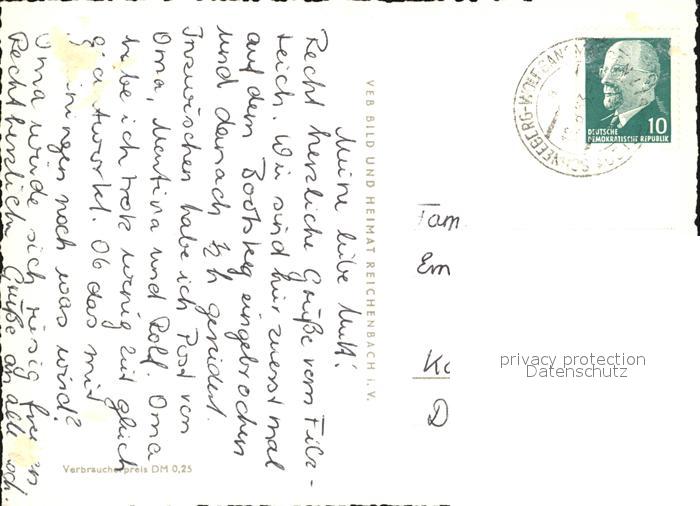 Meine liebe Mutti!
Recht herzliche Grüße vom Filz-
teich. Wir sind hier zuerst mal
auf dem Bootsteg eingebrochen
und danach ½ h gerudert.
Inzwischen habe ich Post von
Oma, Martina und Rolf. Oma
habe ich trotz wenig Zeit gleich
geantwortet. Ob das mit
ningen noch was wird?
Oma würde sich riesig freuen
Recht herzliche Grüße an alle
VEB BILD UND HEIMAT REICHENBACH i. V.
Verbraucherpreis DM 0,25
SCHNEEBERG-WOLFGANG
DEUTSCHE
DEMOKRATISCHE REPUBLIK
10
Fam
Em
D
privacy protection
Datenschutz